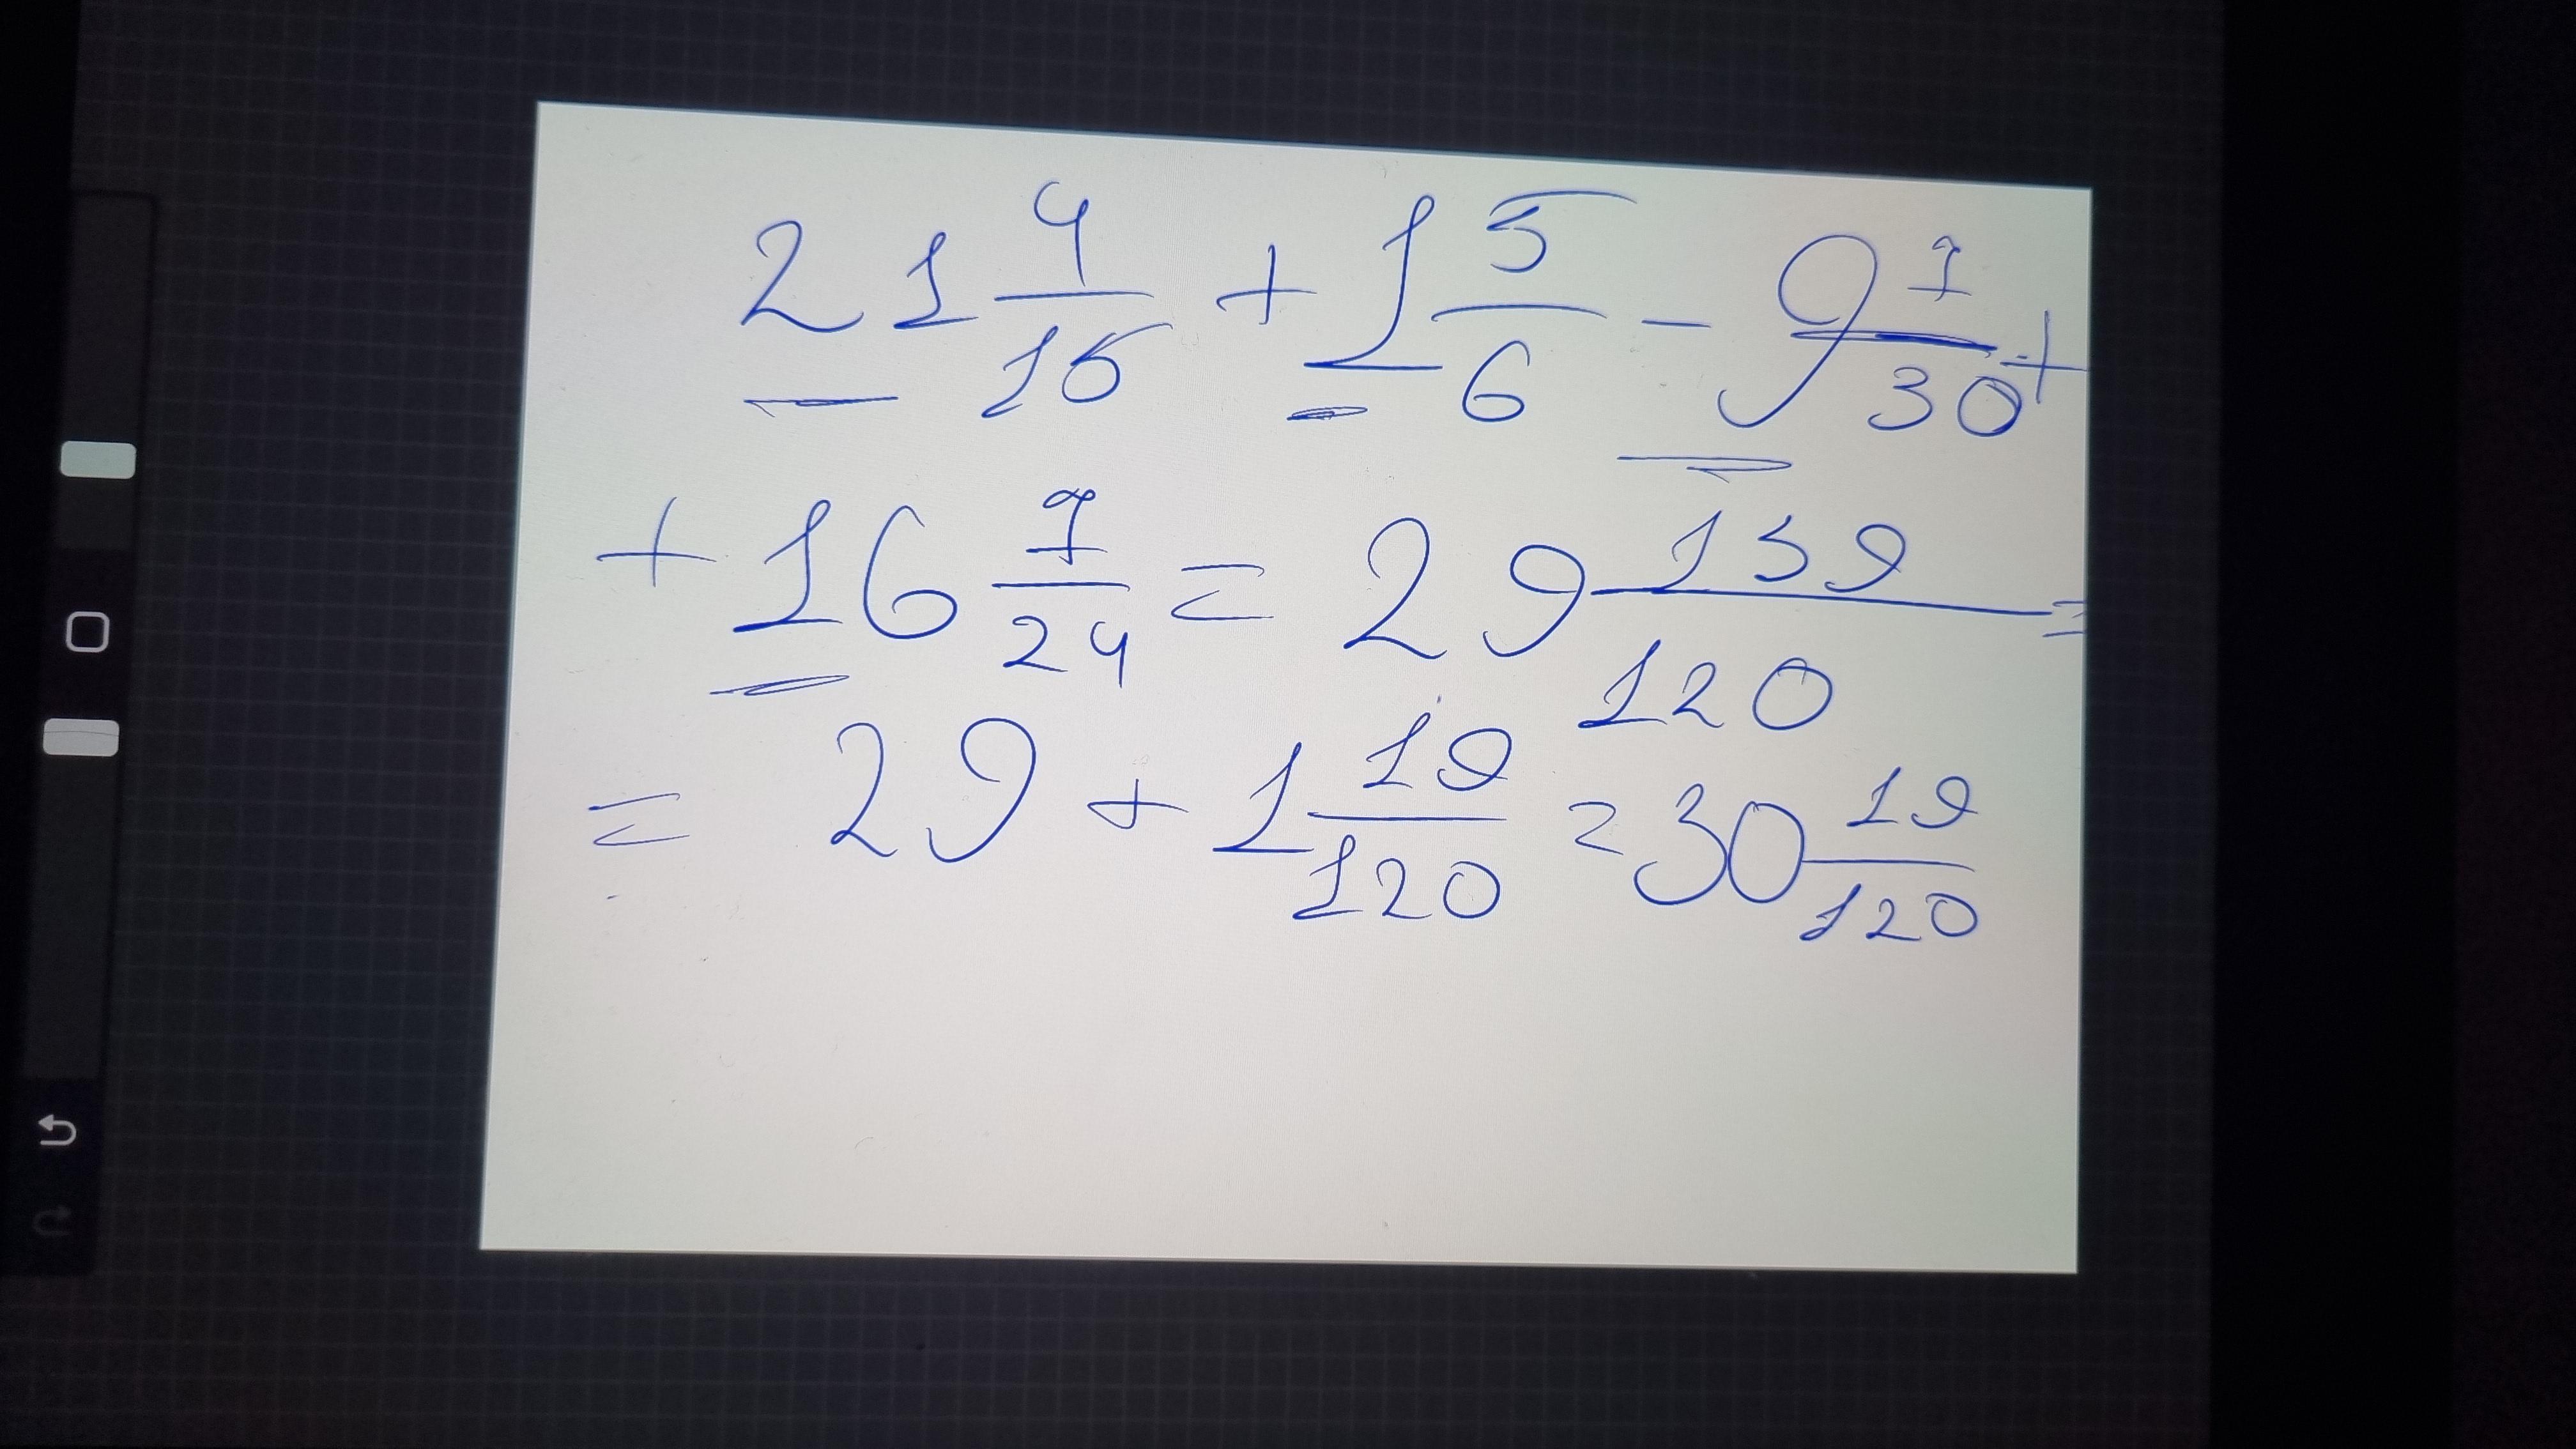 21 4/15 + 1 5/6 - 9 7/30 +
+ 16 7/24 = 29 139/120 =
= 29 + 1 19/120 = 30 19/120